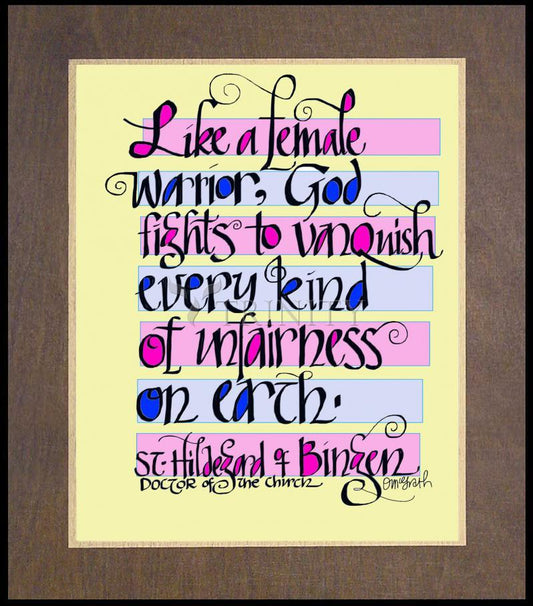 Like a female
Warrior, God
fights to vanquish
every kind
TRINITY
of unfairness
on earth.
St. Hildegard of Bingen
Doctor of the Church
OMcGrath